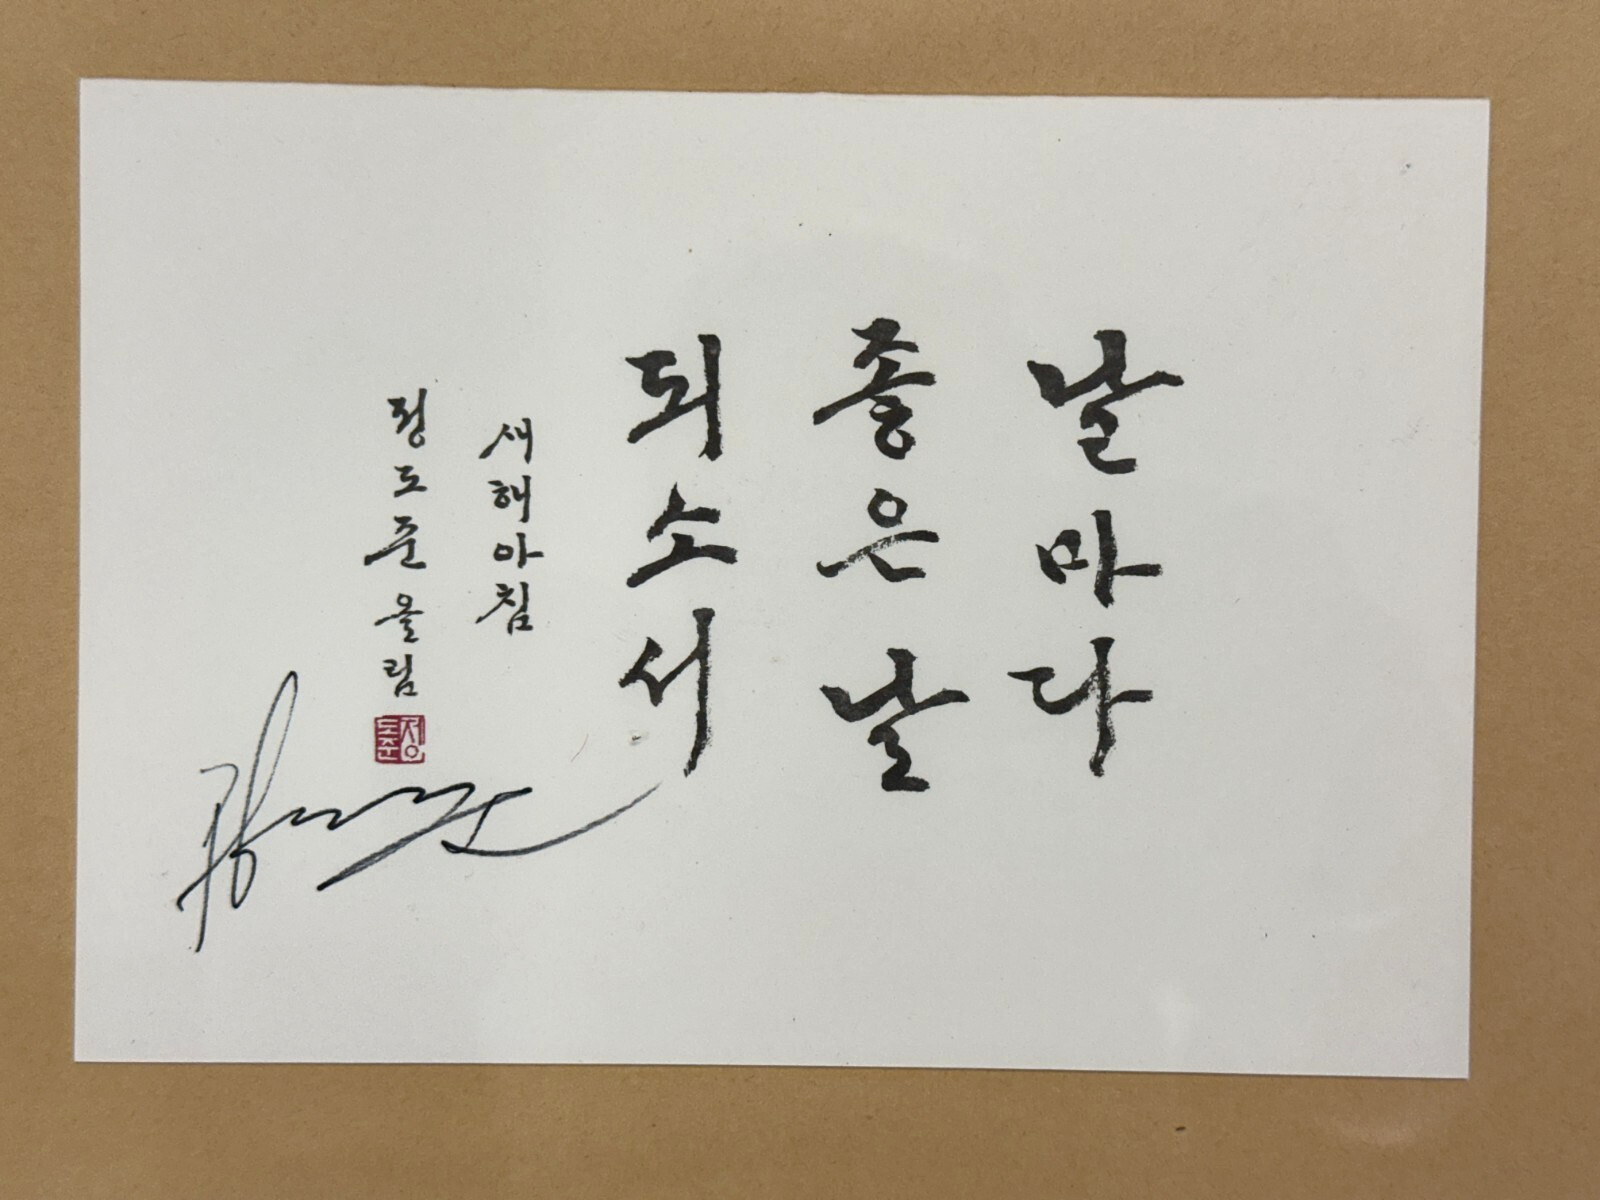 날마다
좋은날
되소서
새해아침
정도준 올림
정도준